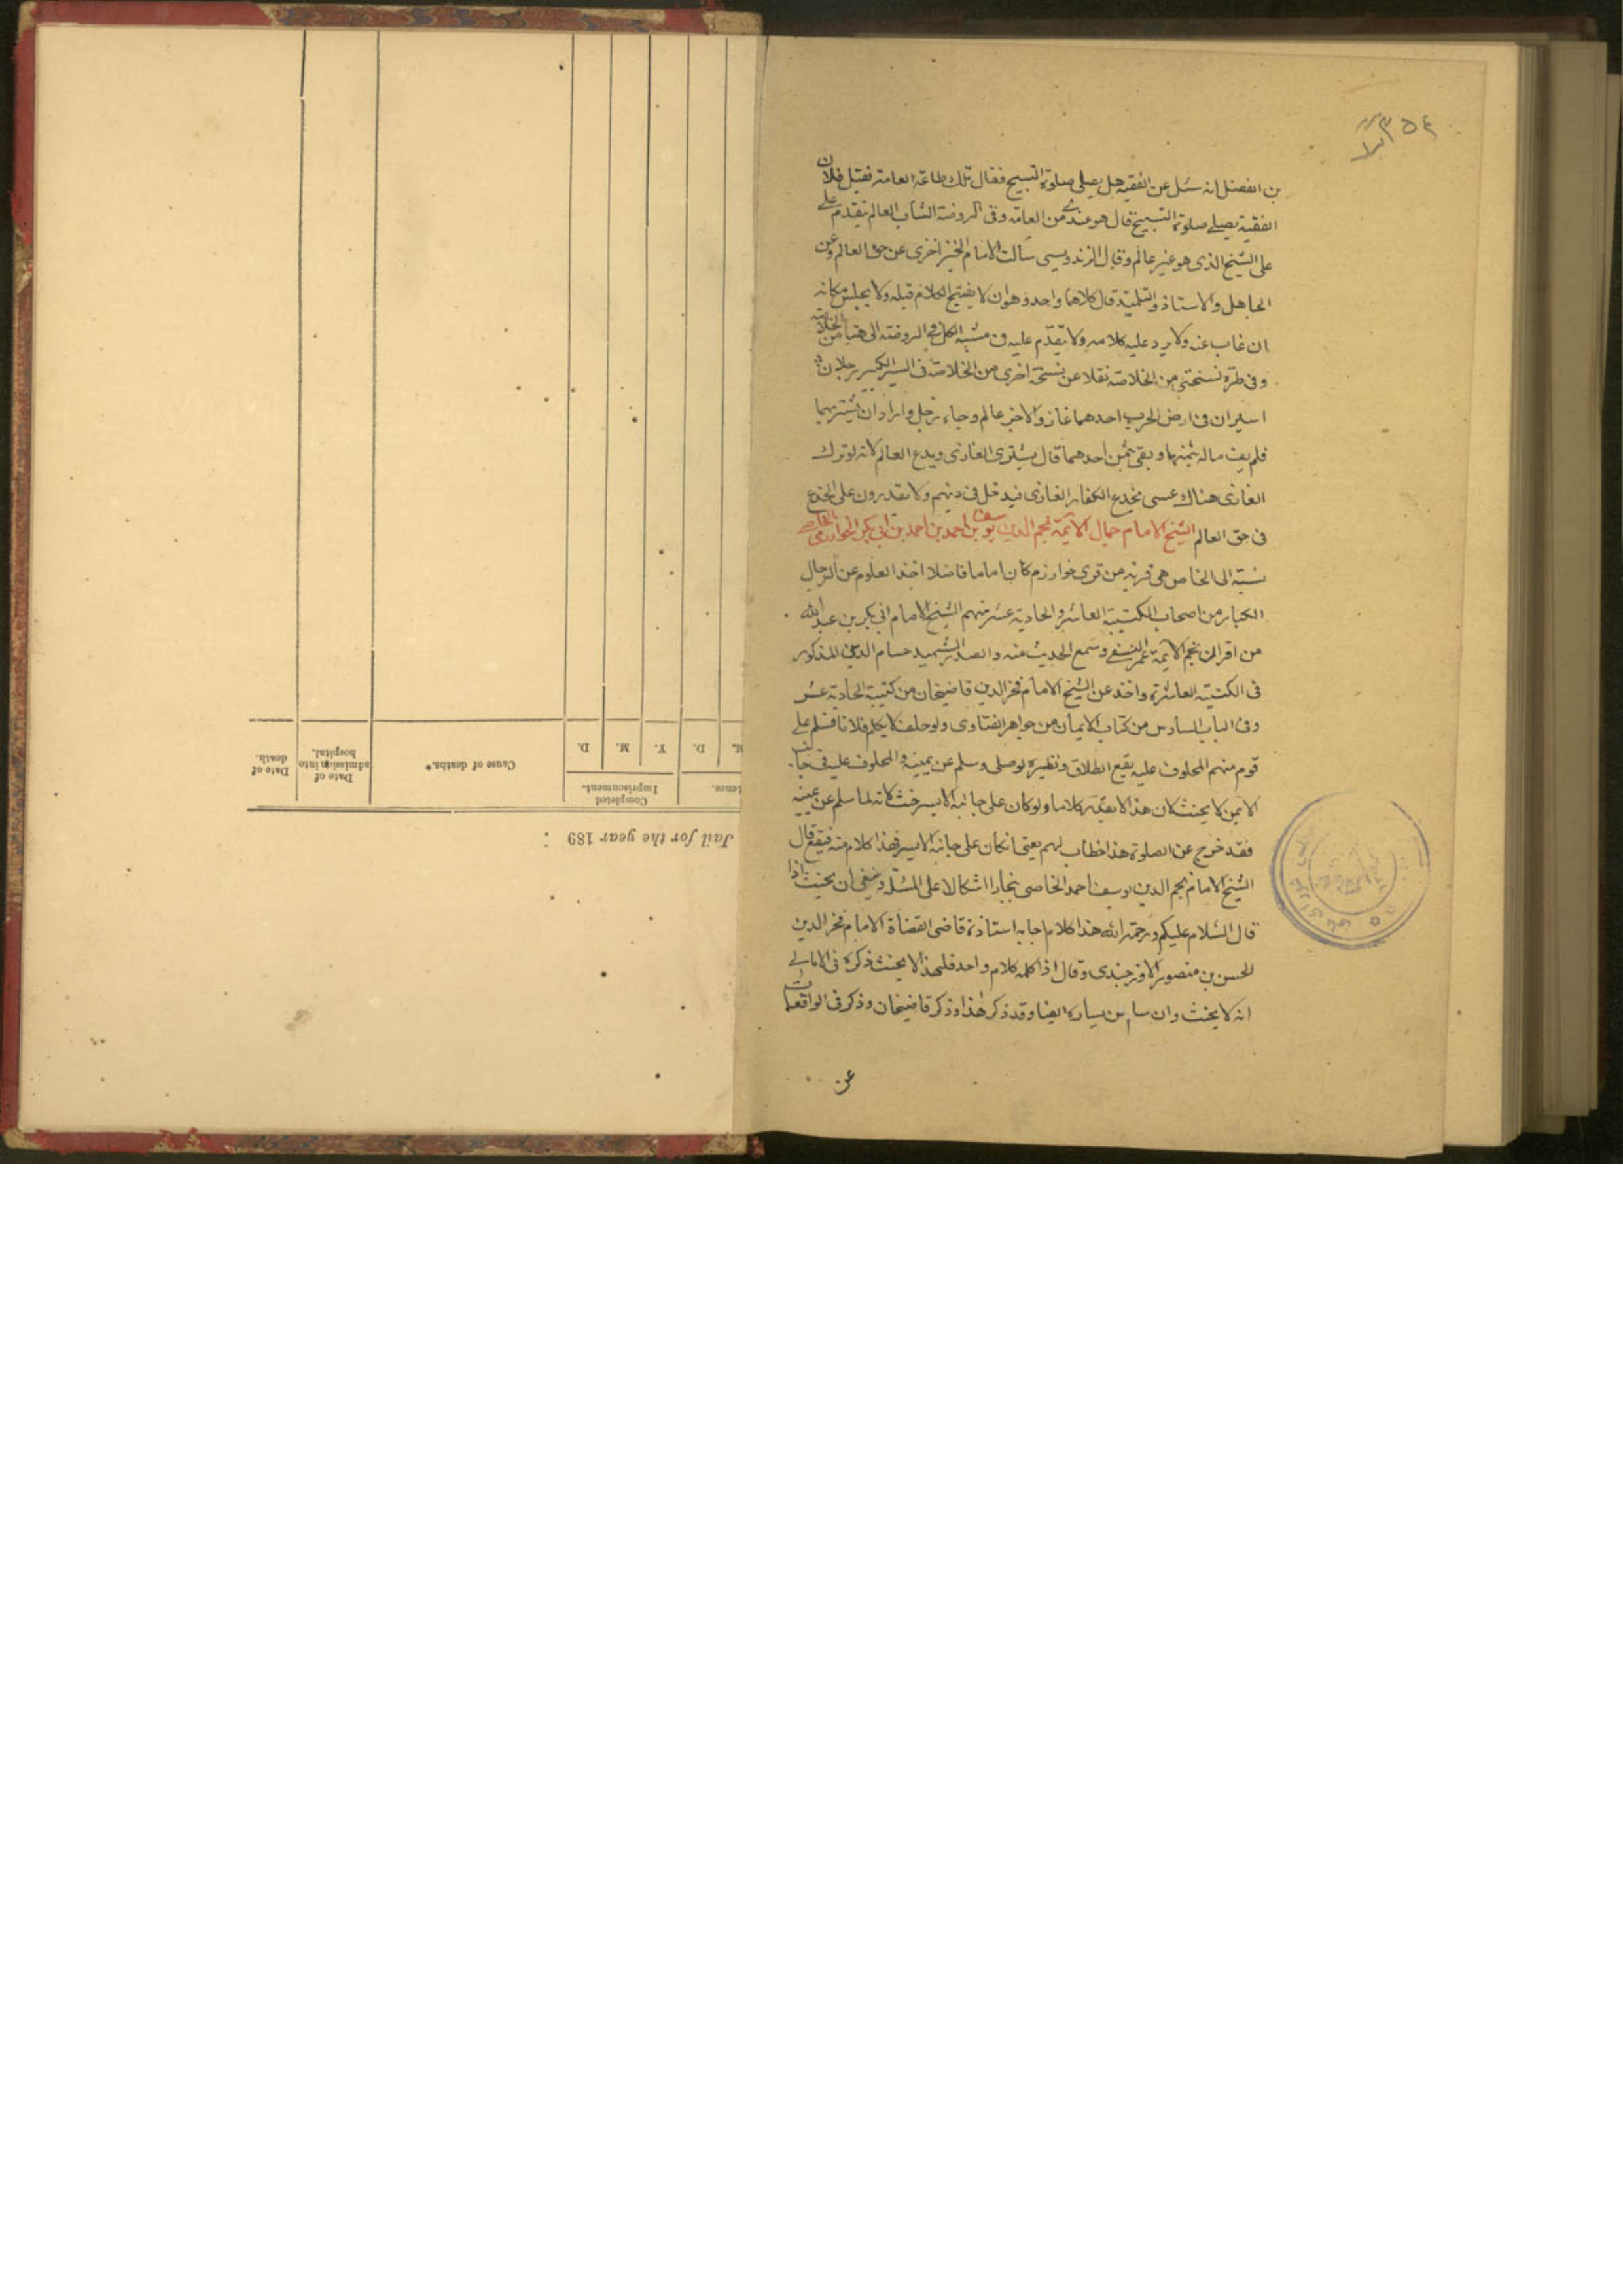 ٣٥٤
بن الفضل انه سئل عن الفقيه هل يصلى صلوة التسبيح فقال تلك طاعة العامة فقيل فلان
الفقيه يصلے صلوة التسبيح قال هو عندے من العامة وفى الروضة الشاب العالم يتقدم علے
على الشيخ الذى هو غير عالم وقال الزندويسى سألت الامام الخيزاخزى عن حق العالم وعن
الجاهل والاستاذ والتلميذ قال كلاهما واحد وهوان لا يفتتح الكلام قبله ولا يجلس مكانه
ان غاب عنه ولا يرد عليه كلامه ولا يتقدم عليه فى مشيه الكل فى الروضة الى هنا من الخلاصة
وفى طرة نسختى من الخلاصة نقلا عن نسخة اخرى من الخلاصة فى السير الكبير رجلان
اسيران فى ارض الحرب احدهما غاز والاخر عالم وجاء رجل واراد ان يشتريهما
فلم يف ماله بثمنهما و بقى بثمن احدهما قال يشترى الغازى ويدع العالم لانه لو ترك
الغازى هناك عسى يخدع الكفار الغازى فيدخل فى دينهم ولا يقدرون على الخدع
فى حق العالم الشيخ الامام جمال الائمة نجم الدين يوسف بن احمد بن احمد بن ابى بكر الخوارزمى الخاصے
نسبة الى الخاص هى قرية من قرى خوارزم كان اماما فاضلا اخذ العلوم عن الرجال
الكبار من اصحاب الكتيبة العاشر والحادية عشر منهم الشيخ الامام ابى بكر بن عبد الله
من اقران نجم الائمة عمر النسفے وسمع الحديث منه والصدر الشهيد حسام الدين المذكور
فى الكتيبة العاشرة واخذ عن الشيخ الامام فخر الدين قاضيخان من كتيبة الحادية عشر
وفى الباب السادس من كتاب الايمان من جواهر الفتاوى ولو حلف لا يكلم فلانا فسلم على
قوم منهم المحلوف عليه يقع الطلاق ونظيره لو صلى وسلم عن يمينه والمحلوف عليه فى جانب
الايمن لا يحنث لان هذا لا يعد كلاما ولو كان على جانبه الايسر حنث لانه لما سلم عن يمينه
فقد خرج عن الصلوة هذا خطاب لهم يعنى ان كان على جانبه الايسر فهذا كلام منه فيقع قال
الشيخ الامام نجم الدين يوسف احمد الخاصى بخارا اشكالا على المسئلة وينبغى ان يحنث اذا
قال السلام عليكم ورحمة الله هذا كلام اجابه استاذه قاضى القضاة الامام فخر الدين
الحسن بن منصور الاوزجندى وقال اذا كلمه كلام واحد فلهذا لا يحنث ذكره فى الامالے
انه لا يحنث وان سلم عن يساره ايضا وقد ذكر هذا وذكر قاضيخان وذكر فى الواقعات
عن
Jail for the year 189 :
tence.
Completed Imprisonment.
M.
D.
Y.
M.
D.
Cause of deaths.*
Date of admission into hospital.
Date of death.